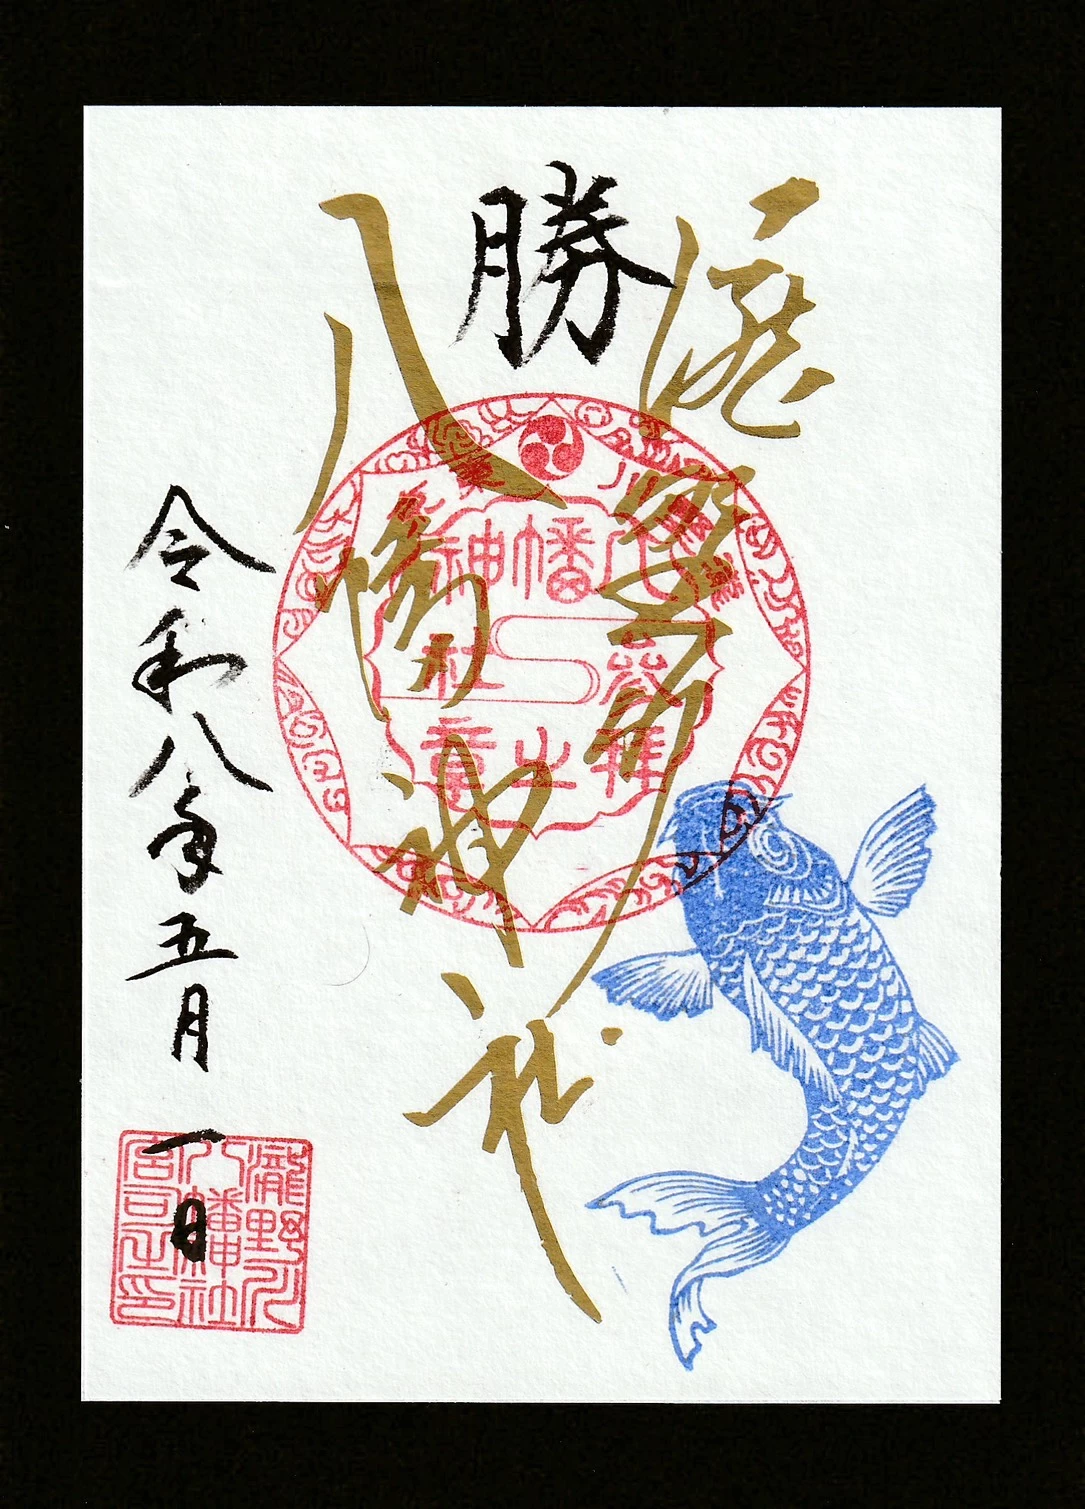 勝
瀧野川
八幡神社
八幡神社
参拝之章
令和八年五月一日
瀧野川
八幡神社
宮司之印